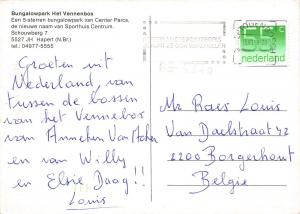 Bungalowpark Het Vennenbos
Een 5-sterren bungalowpark van Center Parcs,
de nieuwe naam van Sporthuis Centrum.
Schouwberg 7
5527 JH Hapert (N.Br.)
tel.: 04977-5555
55 c
nederland
Groeten uit
Nederland, van
tussen de bossen
van het Vennebos
van Anneken Van Acker
en van Willy
en Elsie, Daag!!
Louis
Mr Raes Louis
Van Daelstraat 42
2200 Borgerhout
België